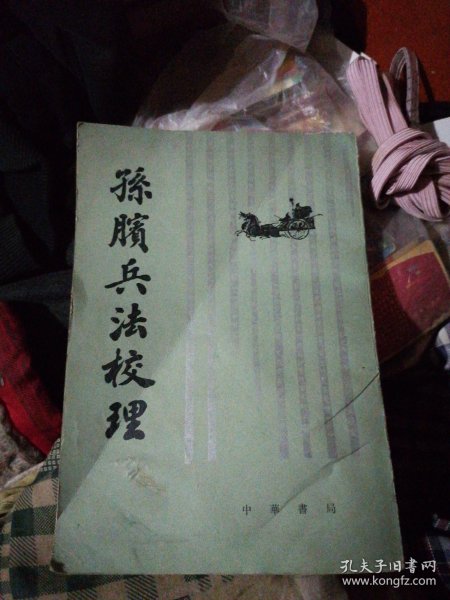 孫臏兵法校理
中華書局
孔夫子旧书网
www.kongfz.com